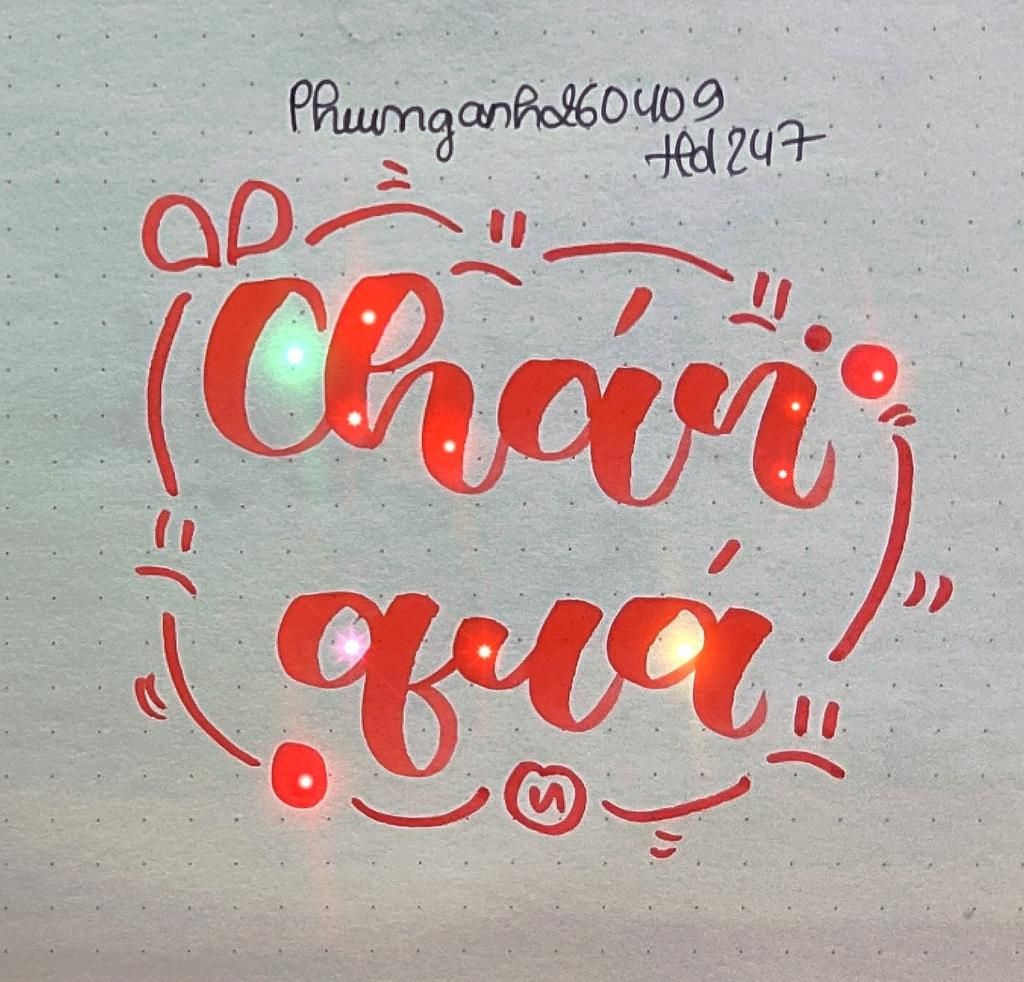 Phuunganhd260409
Hd247
Chán
quá